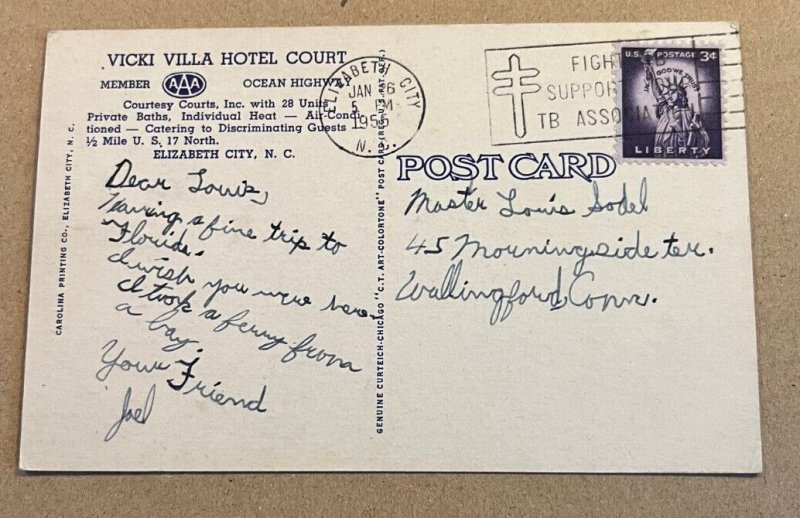 VICKI VILLA HOTEL COURT
MEMBER AAA OCEAN HIGHWAY
Courtesy Courts, Inc. with 28 Units
Private Baths, Individual Heat — Air-Condi-
tioned — Catering to Discriminating Guests
½ Mile U. S. 17 North.
ELIZABETH CITY, N. C.
Dear Louis,
Having a fine trip to
Florida.
I wish you were here.
I took a ferry from
a bay.
Your Friend
Joel
CAROLINA PRINTING CO., ELIZABETH CITY, N. C.
GENUINE CURTEICH-CHICAGO "C.T. ART-COLORTONE" POST CARD (REG. U.S. PAT. OFF.)
ELIZABETH CITY
JAN 6
5 PM
1956
N. C.
FIGHT TB
SUPPORT
TB ASSOCIAT
U.S. POSTAGE 3¢
IN GOD WE TRUST
LIBERTY
POST CARD
Master Louis Sodel
45 Morningside ter.
Wallingford, Conn.